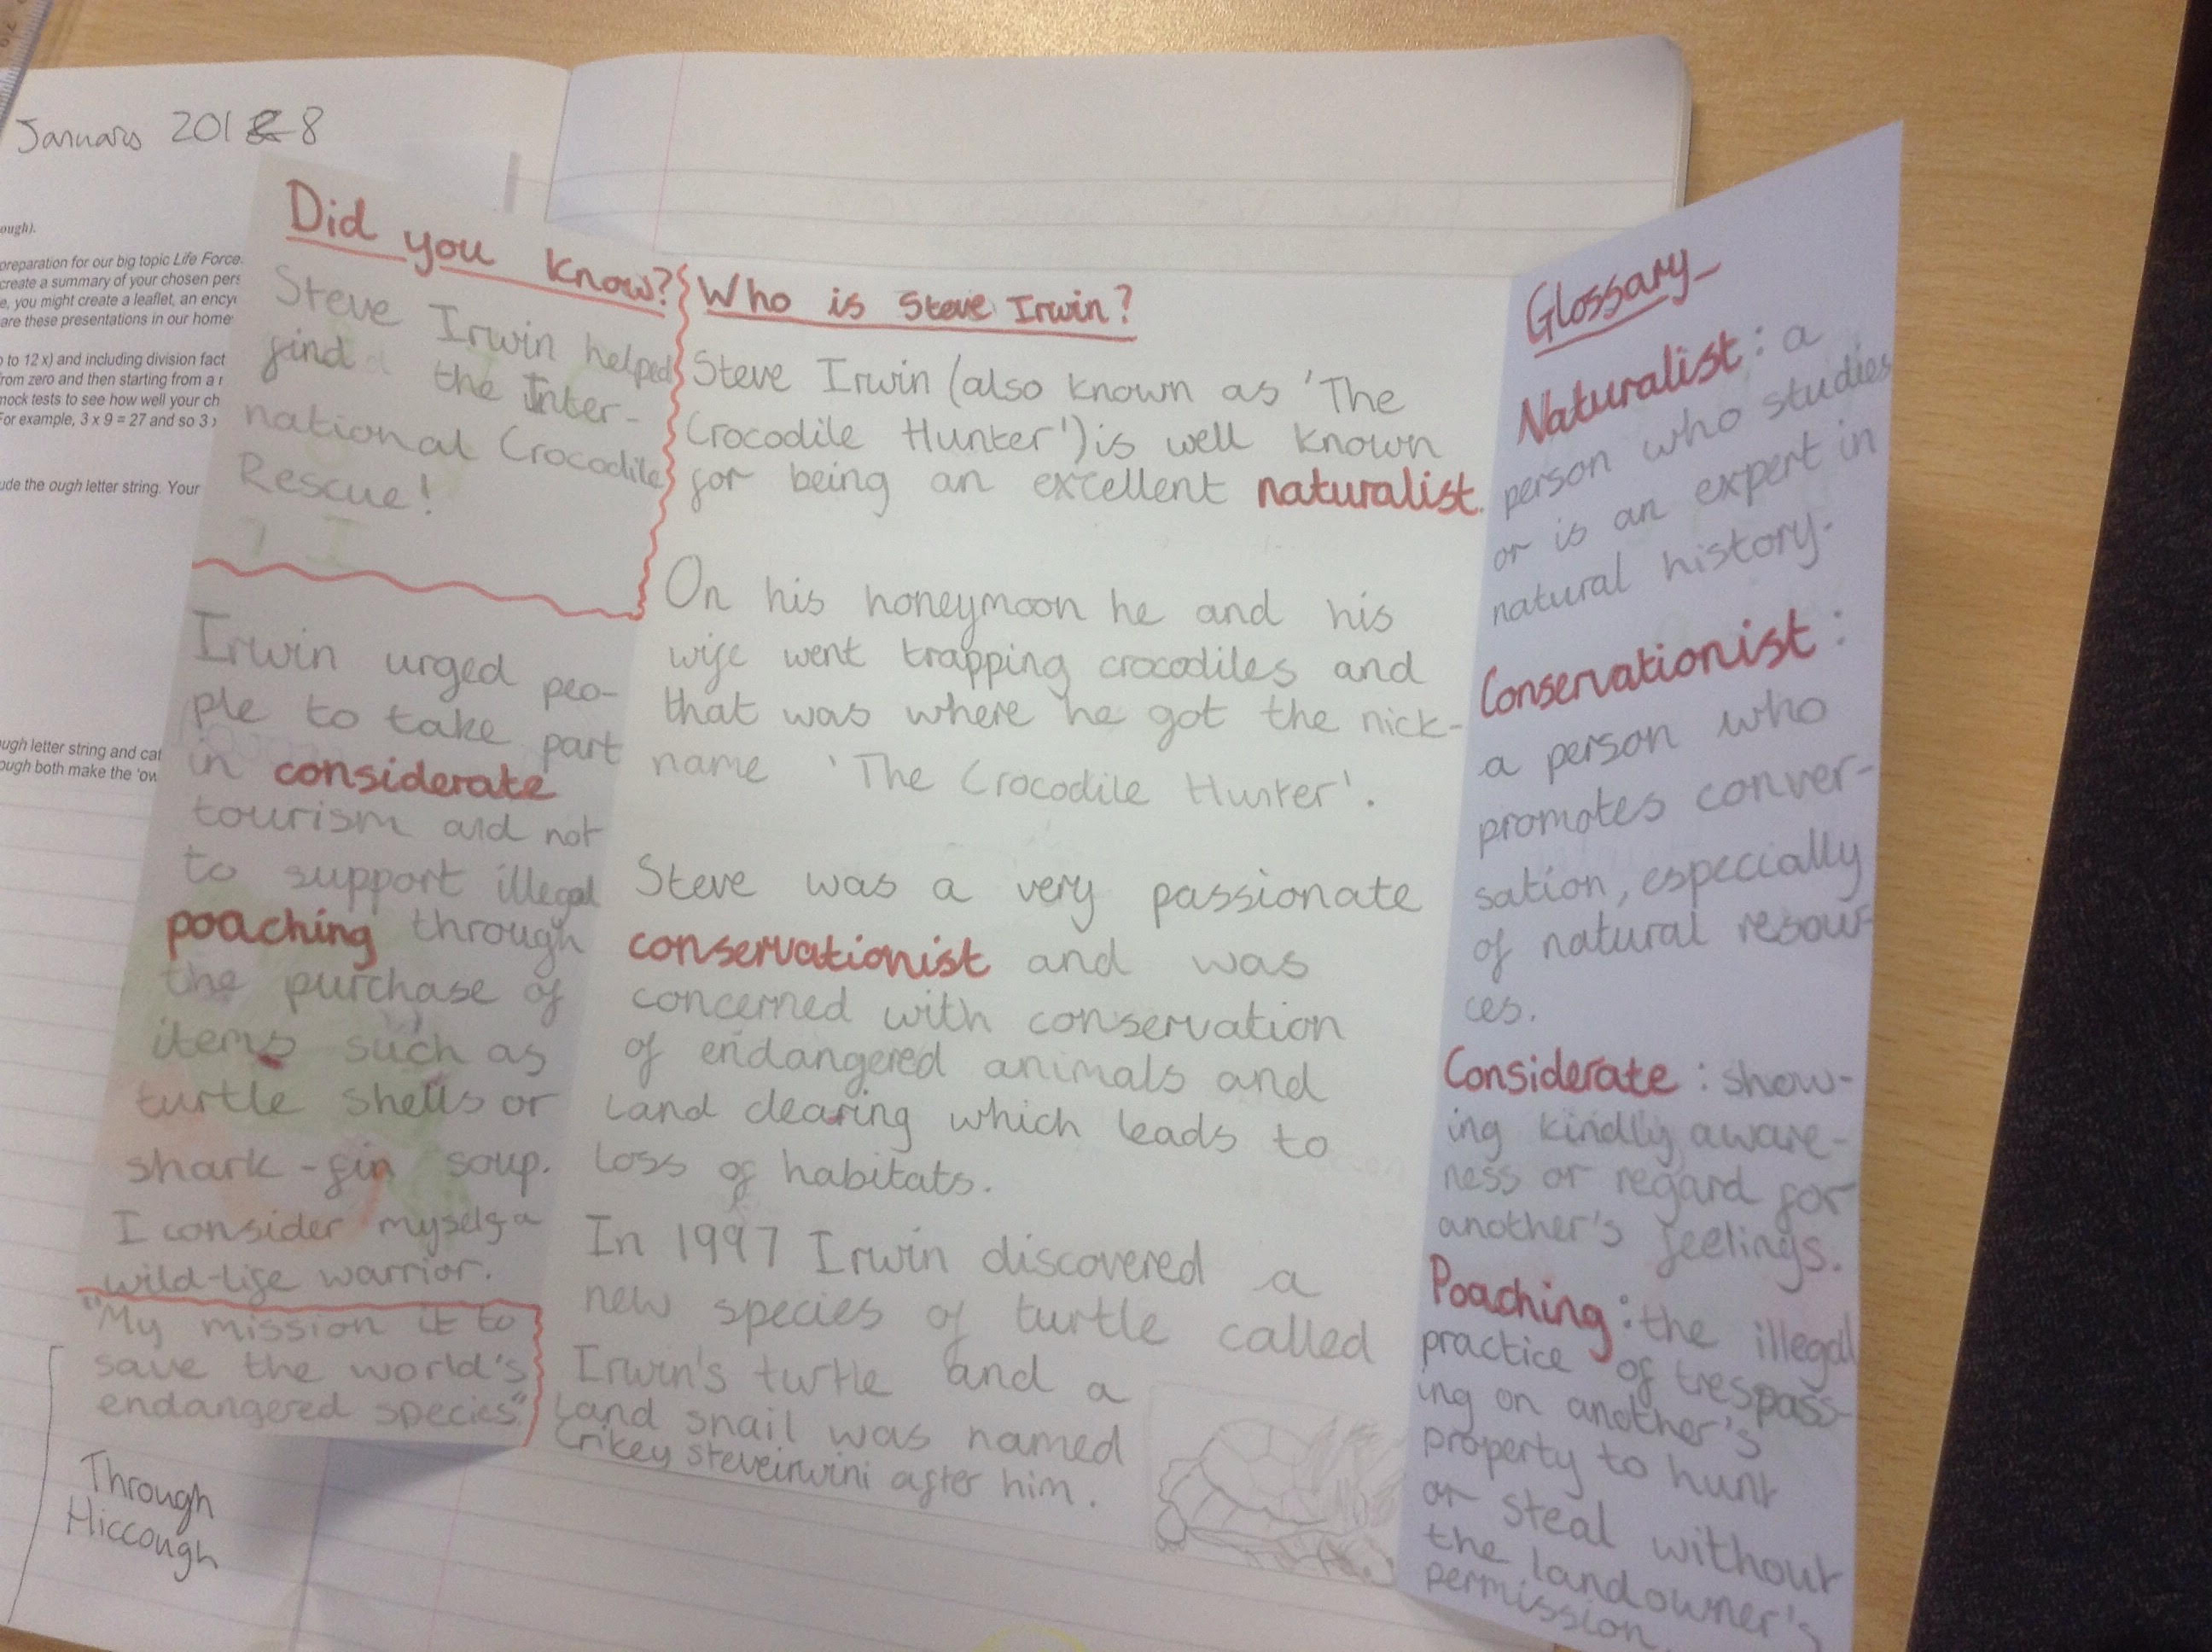 January 2018
ough).
preparation for our big topic Life Force.
create a summary of your chosen pers
e, you might create a leaflet, an ency
are these presentations in our home
to 12 x) and including division fact
rom zero and then starting from a
mock tests to see how well your ch
For example, 3 x 9 = 27 and so 3
ude the ough letter string. Your
ugh letter string and cat
ough both make the 'ow
Did you know?
Steve Irwin helped
find the Inter-
national Crocodile
Rescue!
Irwin urged peo-
ple to take part
in considerate
tourism and not
to support illegal
poaching through
the purchase of
items such as
turtle shells or
shark-fin soup.
I consider myself a
wild-life warrior.
"My mission it to
save the world's
endangered species"
Through
Hiccough
Who is Steve Irwin?
Steve Irwin (also known as 'The
Crocodile Hunter') is well known
for being an excellent naturalist.
On his honeymoon he and his
wife went trapping crocodiles and
that was where he got the nick-
name 'The Crocodile Hunter'.
Steve was a very passionate
conservationist and was
concerned with conservation
of endangered animals and
land clearing which leads to
loss of habitats.
In 1997 Irwin discovered a
new species of turtle called
Irwin's turtle and a
land snail was named
Crikey steveirwini after him.
Glossary
Naturalist: a
person who studies
or is an expert in
natural history.
Conservationist:
a person who
promotes conver-
sation, especially
of natural resour-
ces.
Considerate: show-
ing kindly aware-
ness or regard for
another's feelings.
Poaching: the illegal
practice of trespass-
ing on another's
property to hunt
or steal without
the landowner's
permission.